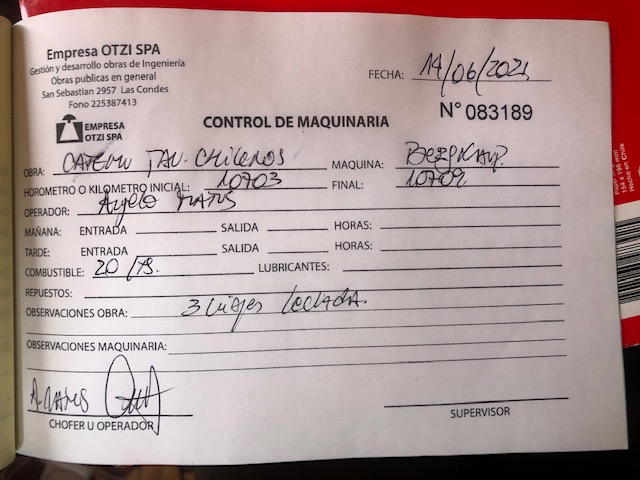 Empresa OTZI SPA
Gestión y desarrollo obras de Ingeniería
Obras publicas en general
San Sebastian 2957 Las Condes
Fono 225387413
EMPRESA
OTZI SPA
CONTROL DE MAQUINARIA
FECHA: 14/06/2024
N° 083189
OBRA: CATEMU TAU-CHILENOS MAQUINA:
HOROMETRO O KILOMETRO INICIAL: 10703 FINAL: 10709
OPERADOR:
MAÑANA: ENTRADA SALIDA HORAS:
TARDE: ENTRADA SALIDA HORAS:
COMBUSTIBLE: 20 /13. LUBRICANTES:
REPUESTOS:
OBSERVACIONES OBRA: 3 viajes
OBSERVACIONES MAQUINARIA:
CHOFER U OPERADOR
SUPERVISOR
154 x 196 mm
Hecho en Chile